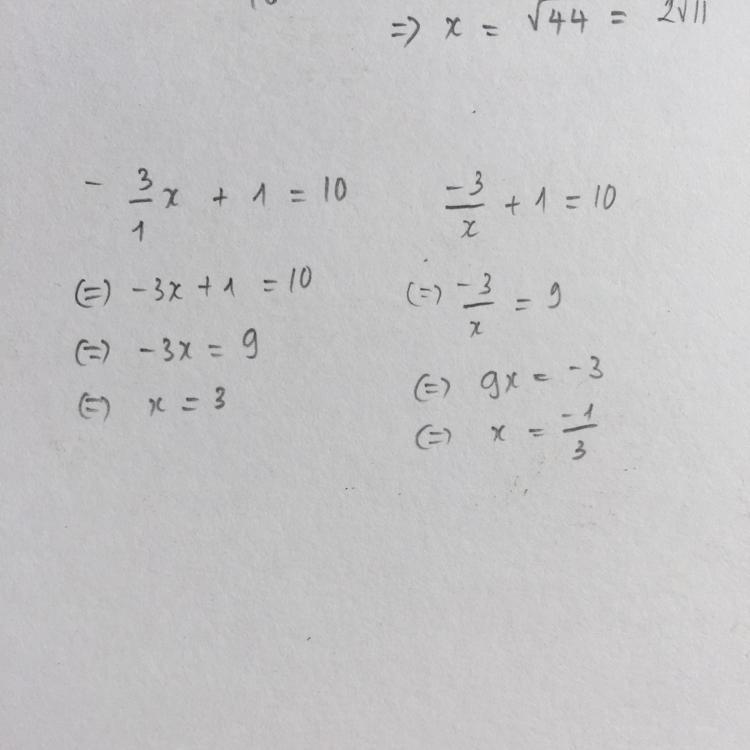 => x = √44 = 2√11
- 3/1 x + 1 = 10
(=) -3x + 1 = 10
(=) -3x = 9
(=) x = 3
-3/x + 1 = 10
(=) -3/x = 9
(=) 9x = -3
(=) x = -1/3